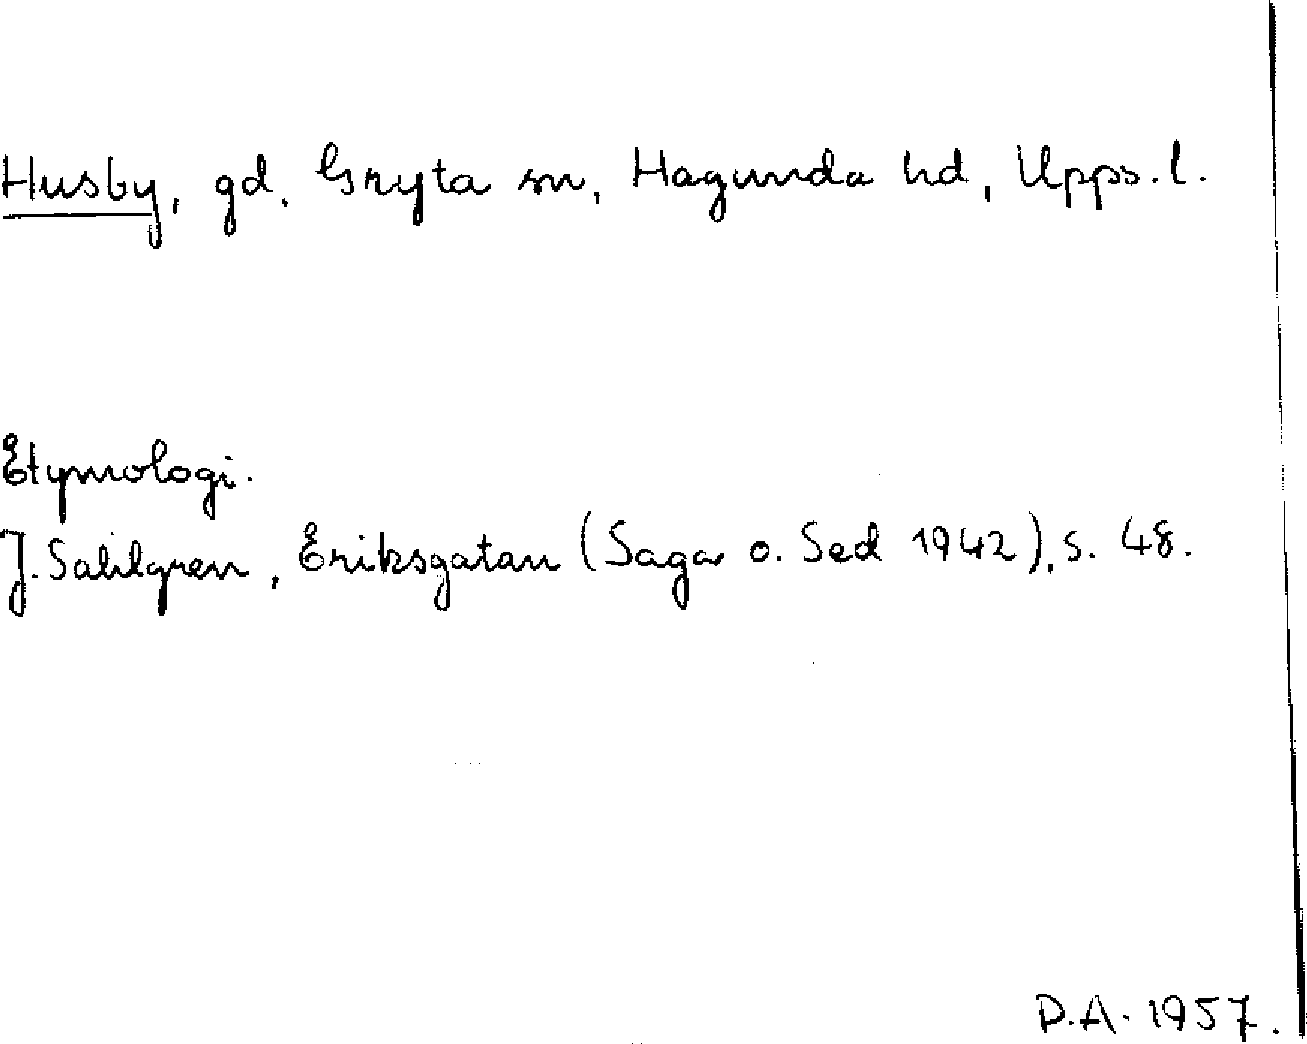 Husby, gd. Gryta sn, Hagunda hd, Upps. l.
Etymologi.
J. Sahlgren, Eriksgatan (Saga o. Sed 1942), s. 48.
D.A. 1957.